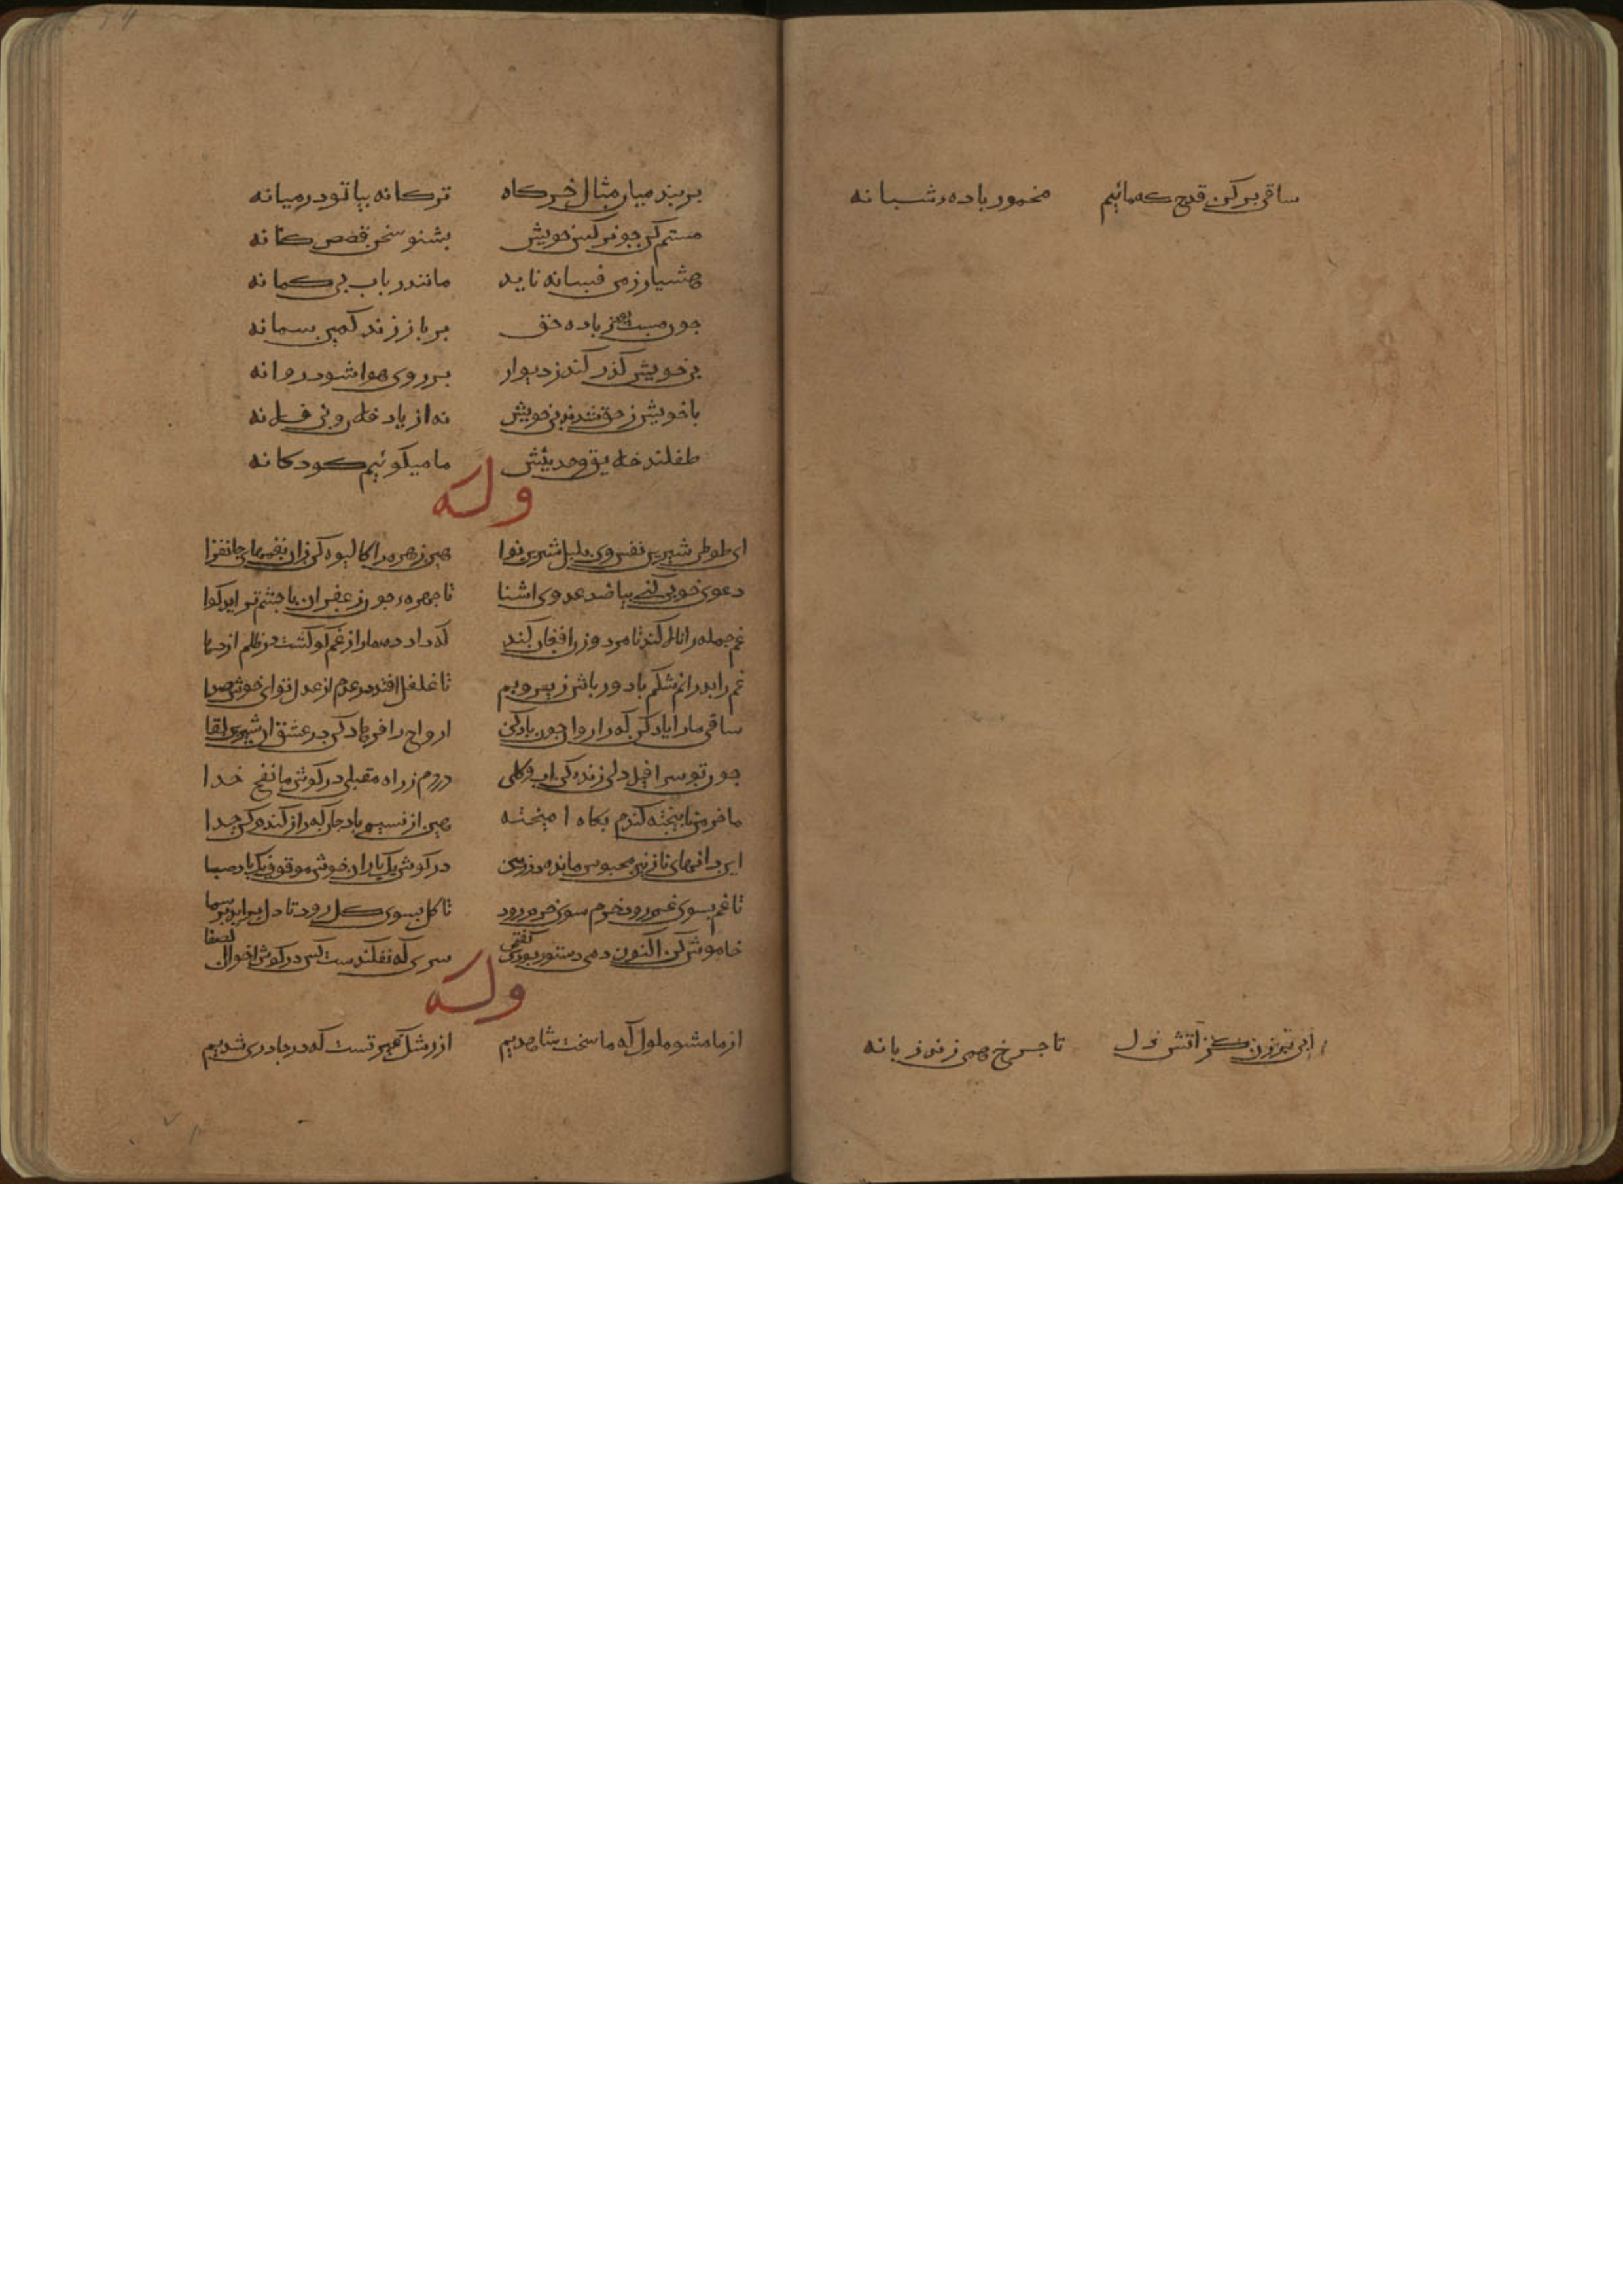 ساقی بر کن قدح که مائیم مخمور باده شبانه
تا چرخ همی زند زبانه
بر بند میان مثال خرگاه ترکانه بیا تو در میانه
مستم کن چو نرگس خویش بشنو سخن قصص کانه
هشیار ز می فسانه ناید مانند رباب بی کمانه
چون مست ز باده حق
بی خویش گذر کند ز دیوار بر روی هوا شود روانه
با خویش ز حق شدند بی خویش نه از یاد
طفلند خلایق و حدیثش ما میگوئیم کودکانه
وله
ای طوطی شیرین نفس وی بلبل شیرین نوا هین زهره را کالیوه کن زان نغمهای جانفزا
دعوی خوبی کن بیا صد عدوی اشنا تا چهره چون زعفران با چشم تر ایر کوا
غم جمله را نالان کند تا مرد و زن افغان کند که داد ده ما را از غم کو کشت در ظلم اژدها
غم را بدران شکم با دور باش زیر و بم تا غلغل افتد در عدم از عدل تو ای خوش صدا
ساقی ما را یاد کن ارواح را فرهاد کن در عشق ان شیرین لقا
چون تو سرافیل دلی زنده کن اب و کلی دردم ز راه مقبلی در کوش ما نفخ خدا
ما خرمن تا بیخته کندم بکاه امیخته هین از نسیم باد جان که را ز کندم کن جدا
در کوش یک باران خوش موقوف یک باد صبا
تا غم بسوی غم رود خرم سوی خرم رود تا کل بسوی کل رود تا دل براید بر سما
خاموش کن اکنون دمی دستور بودی گفتمی سری که نفکندست کس در کوش اخوان الصفا
وله
از ما مشو ملول که ما سخت شاهدیم از رشک غیر تست که در چادری شدیم